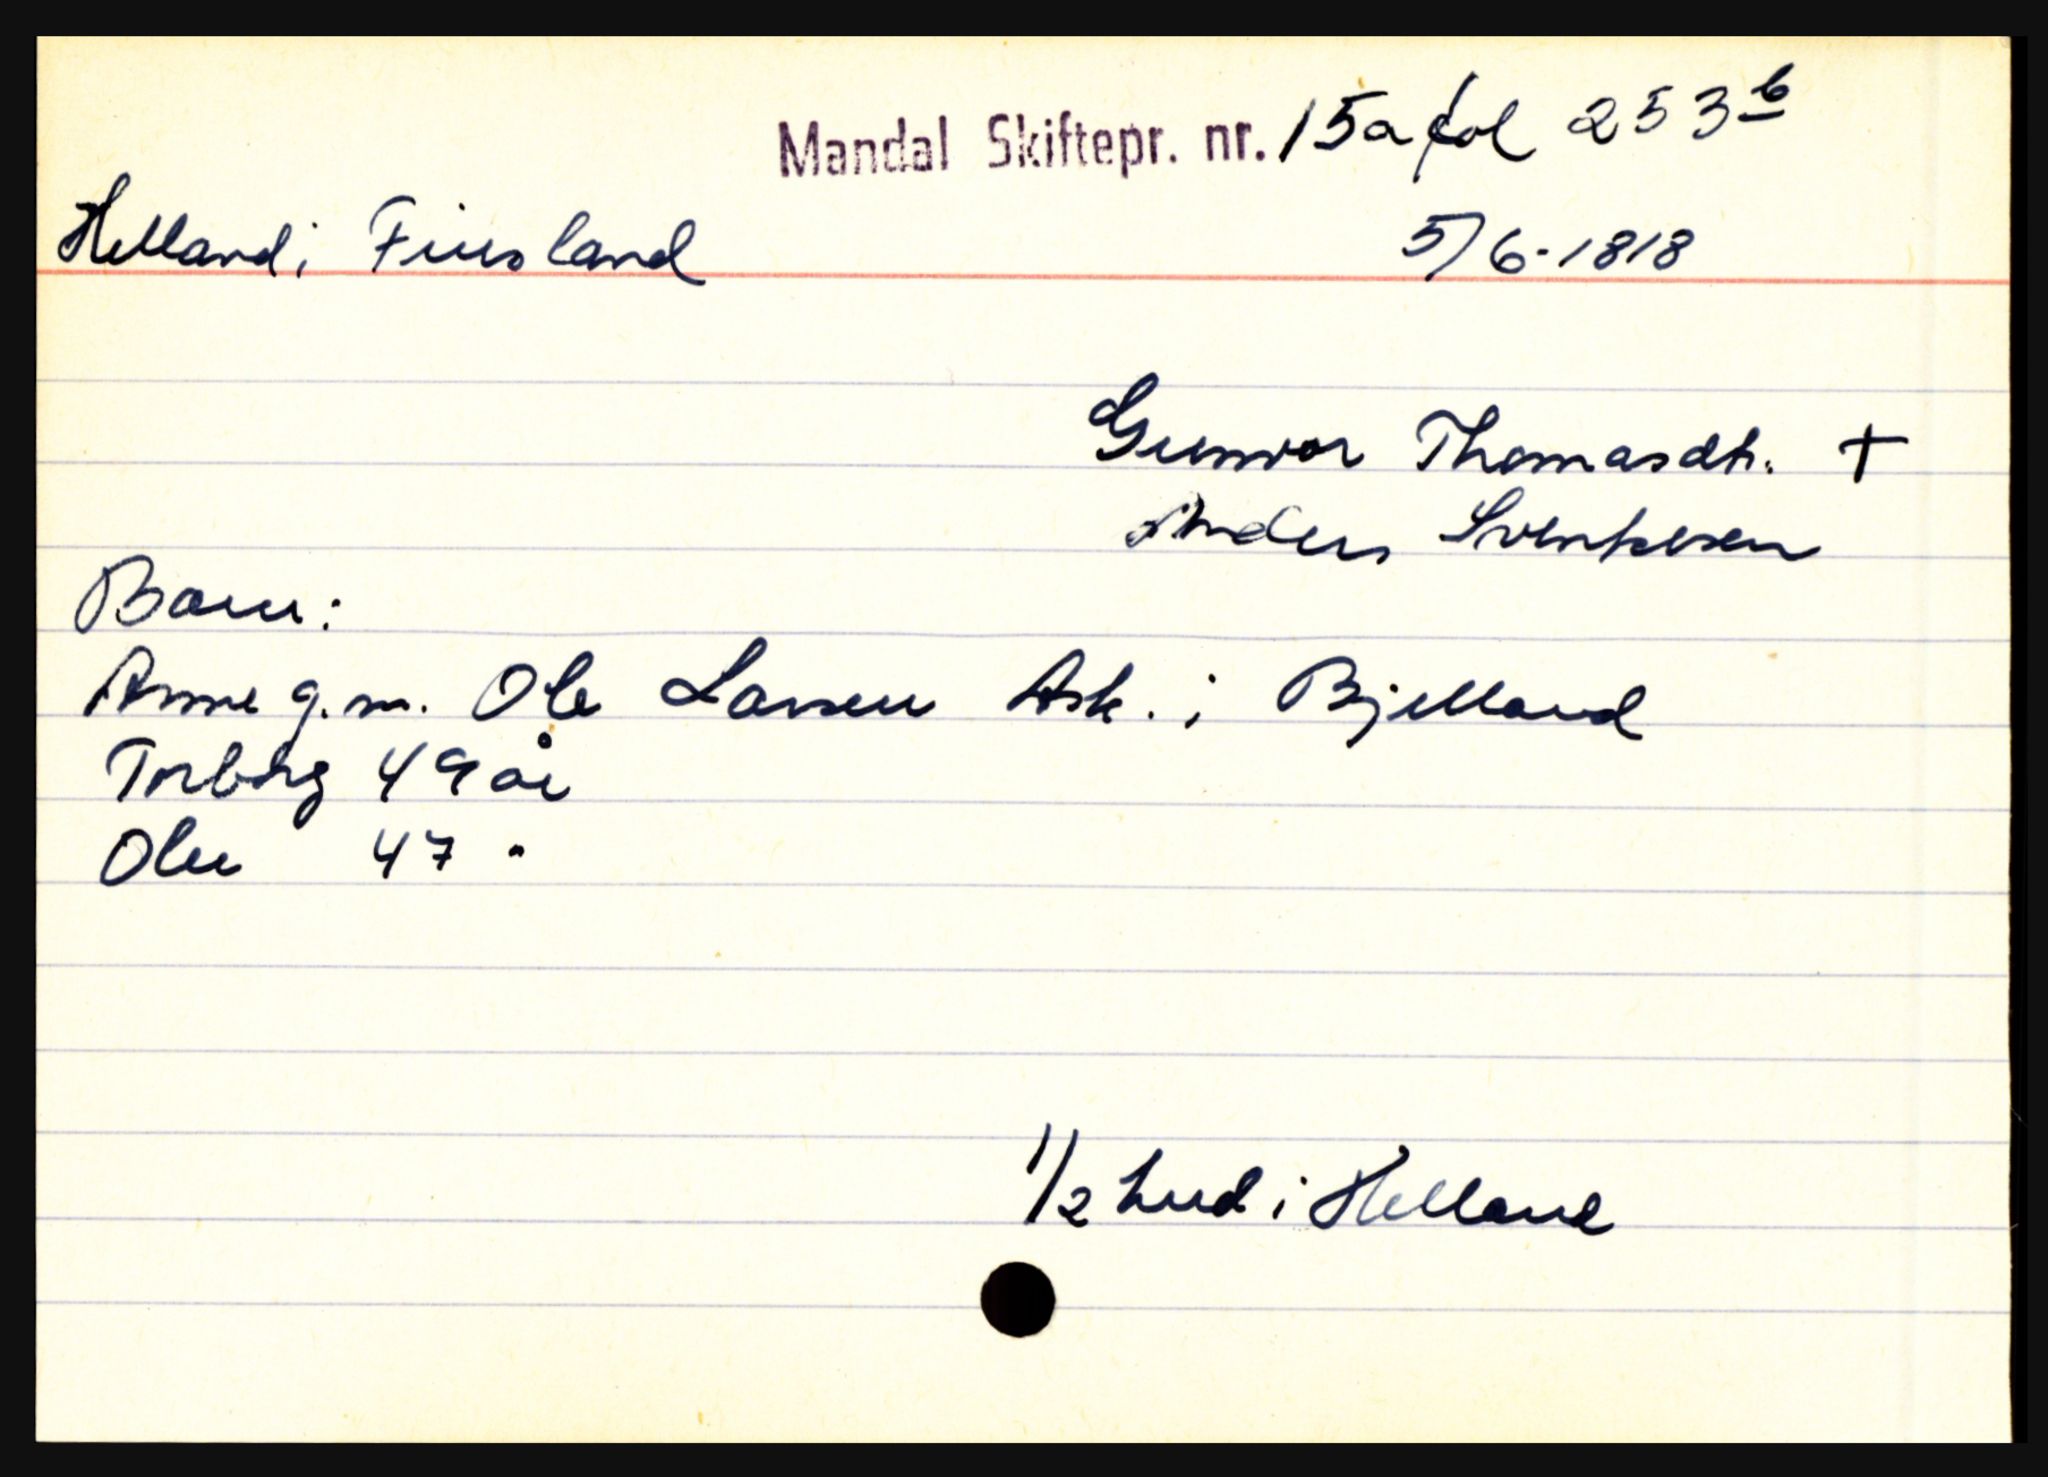 Mandal Skiftepr. nr. 15a fol 253b
Helland i Finsland 5/6-1818
Gunvor Thomasdt. +
Anders Svenkesen
Barn:
Anne g.m. Ole Larsen Ask. i Bjelland
Torborg 49 år
Olee 47 "
1/2 hud i Helland